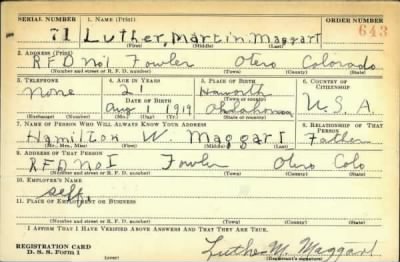 SERIAL NUMBER 1. NAME (Print) ORDER NUMBER
71 Luther Martin Maggart 643
(First) (Middle) (Last)
2. ADDRESS (Print)
RFD No1 Fowler Otero Colorado
(Number and street or R. F. D. number) (Town) (County) (State)
3. TELEPHONE 4. AGE IN YEARS 5. PLACE OF BIRTH 6. COUNTRY OF CITIZENSHIP
none 21 Haworth
DATE OF BIRTH (Town or county)
Aug 1 1919 Oklahoma U.S.A.
(Exchange) (Number) (Mo.) (Day) (Yr.) (State or country)
7. NAME OF PERSON WHO WILL ALWAYS KNOW YOUR ADDRESS 8. RELATIONSHIP OF THAT PERSON
Hamilton W. Maggart Father
(Mr., Mrs., Miss) (First) (Middle) (Last)
9. ADDRESS OF THAT PERSON
RFD No I Fowler Otero Colo
(Number and street or R. F. D. number) (Town) (County) (State)
10. EMPLOYER'S NAME
self,
11. PLACE OF EMPLOYMENT OR BUSINESS
(Number and street or R. F. D. number) (Town) (County) (State)
I AFFIRM THAT I HAVE VERIFIED ABOVE ANSWERS AND THAT THEY ARE TRUE.
REGISTRATION CARD
D. S. S. Form 1 Luther M. Maggart
(Registrant's signature)